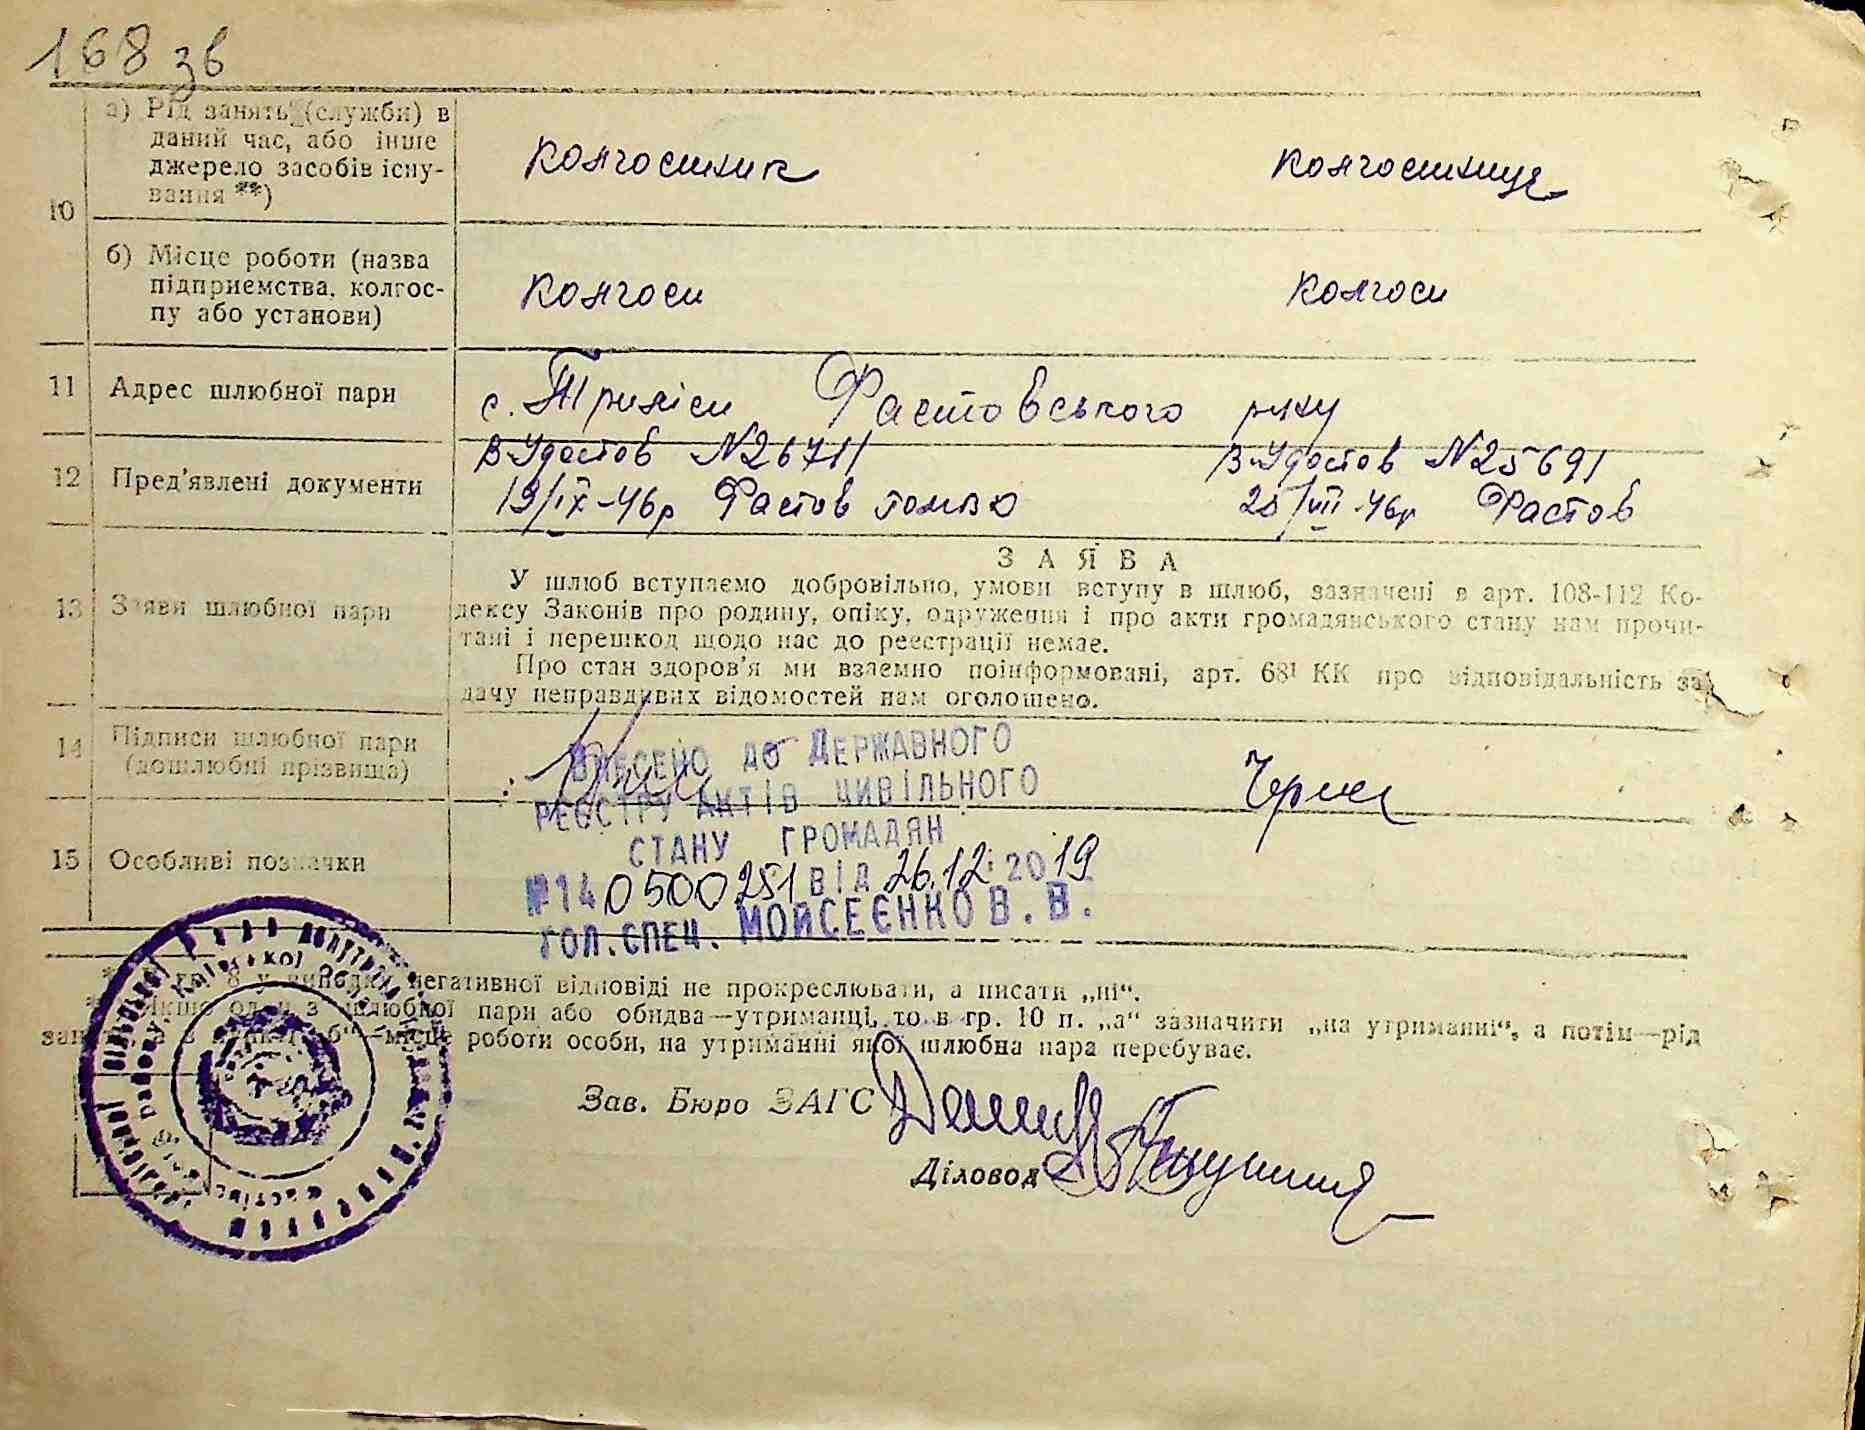 168 зв
10
а) Рід занять (служби) в
даний час, або інше
джерело засобів існу-
вання **)
колгоспник
колгоспниця
б) Місце роботи (назва
підприємства, колгос-
пу або установи)
колгосп
колгосп
11 Адрес шлюбної пари
с. Триліси Фастовського р-ну
12 Пред'явлені документи
В-Удостов №26711
19/IX-46р Фастов
В-Удостов №25691
25/VII-46р Фастов
13 Заяви шлюбної пари
ЗАЯВА
У шлюб вступаємо добровільно, умови вступу в шлюб, зазначені в арт. 108-112 Ко-
дексу Законів про родину, опіку, одруження і про акти громадянського стану нам прочи-
тані і перешкод щодо нас до реєстрації немає.
Про стан здоров'я ми взаємно поінформовані, арт. 68¹ КК про відповідальність за
дачу неправдивих відомостей нам оголошено.
14 Підписи шлюбної пари
(дошлюбні прізвища)
ВНЕСЕНО ДО ДЕРЖАВНОГО
РЕЄСТРУ АКТІВ ЦИВІЛЬНОГО
СТАНУ ГРОМАДЯН
№140500251 ВІД 26.12.2019
ГОЛ.СПЕЦ. МОЙСЕЄНКО В. В.
15 Особливі позначки
негативної відповіді не прокреслювати, а писати „ні“.
один з шлюбної пари або обидва—утриманці, то в гр. 10 п. „а“ зазначити „на утриманні“, а потім—рід
„б“—місце роботи особи, на утриманні якої шлюбна пара перебуває.
Зав. Бюро ЗАГС
Діловод